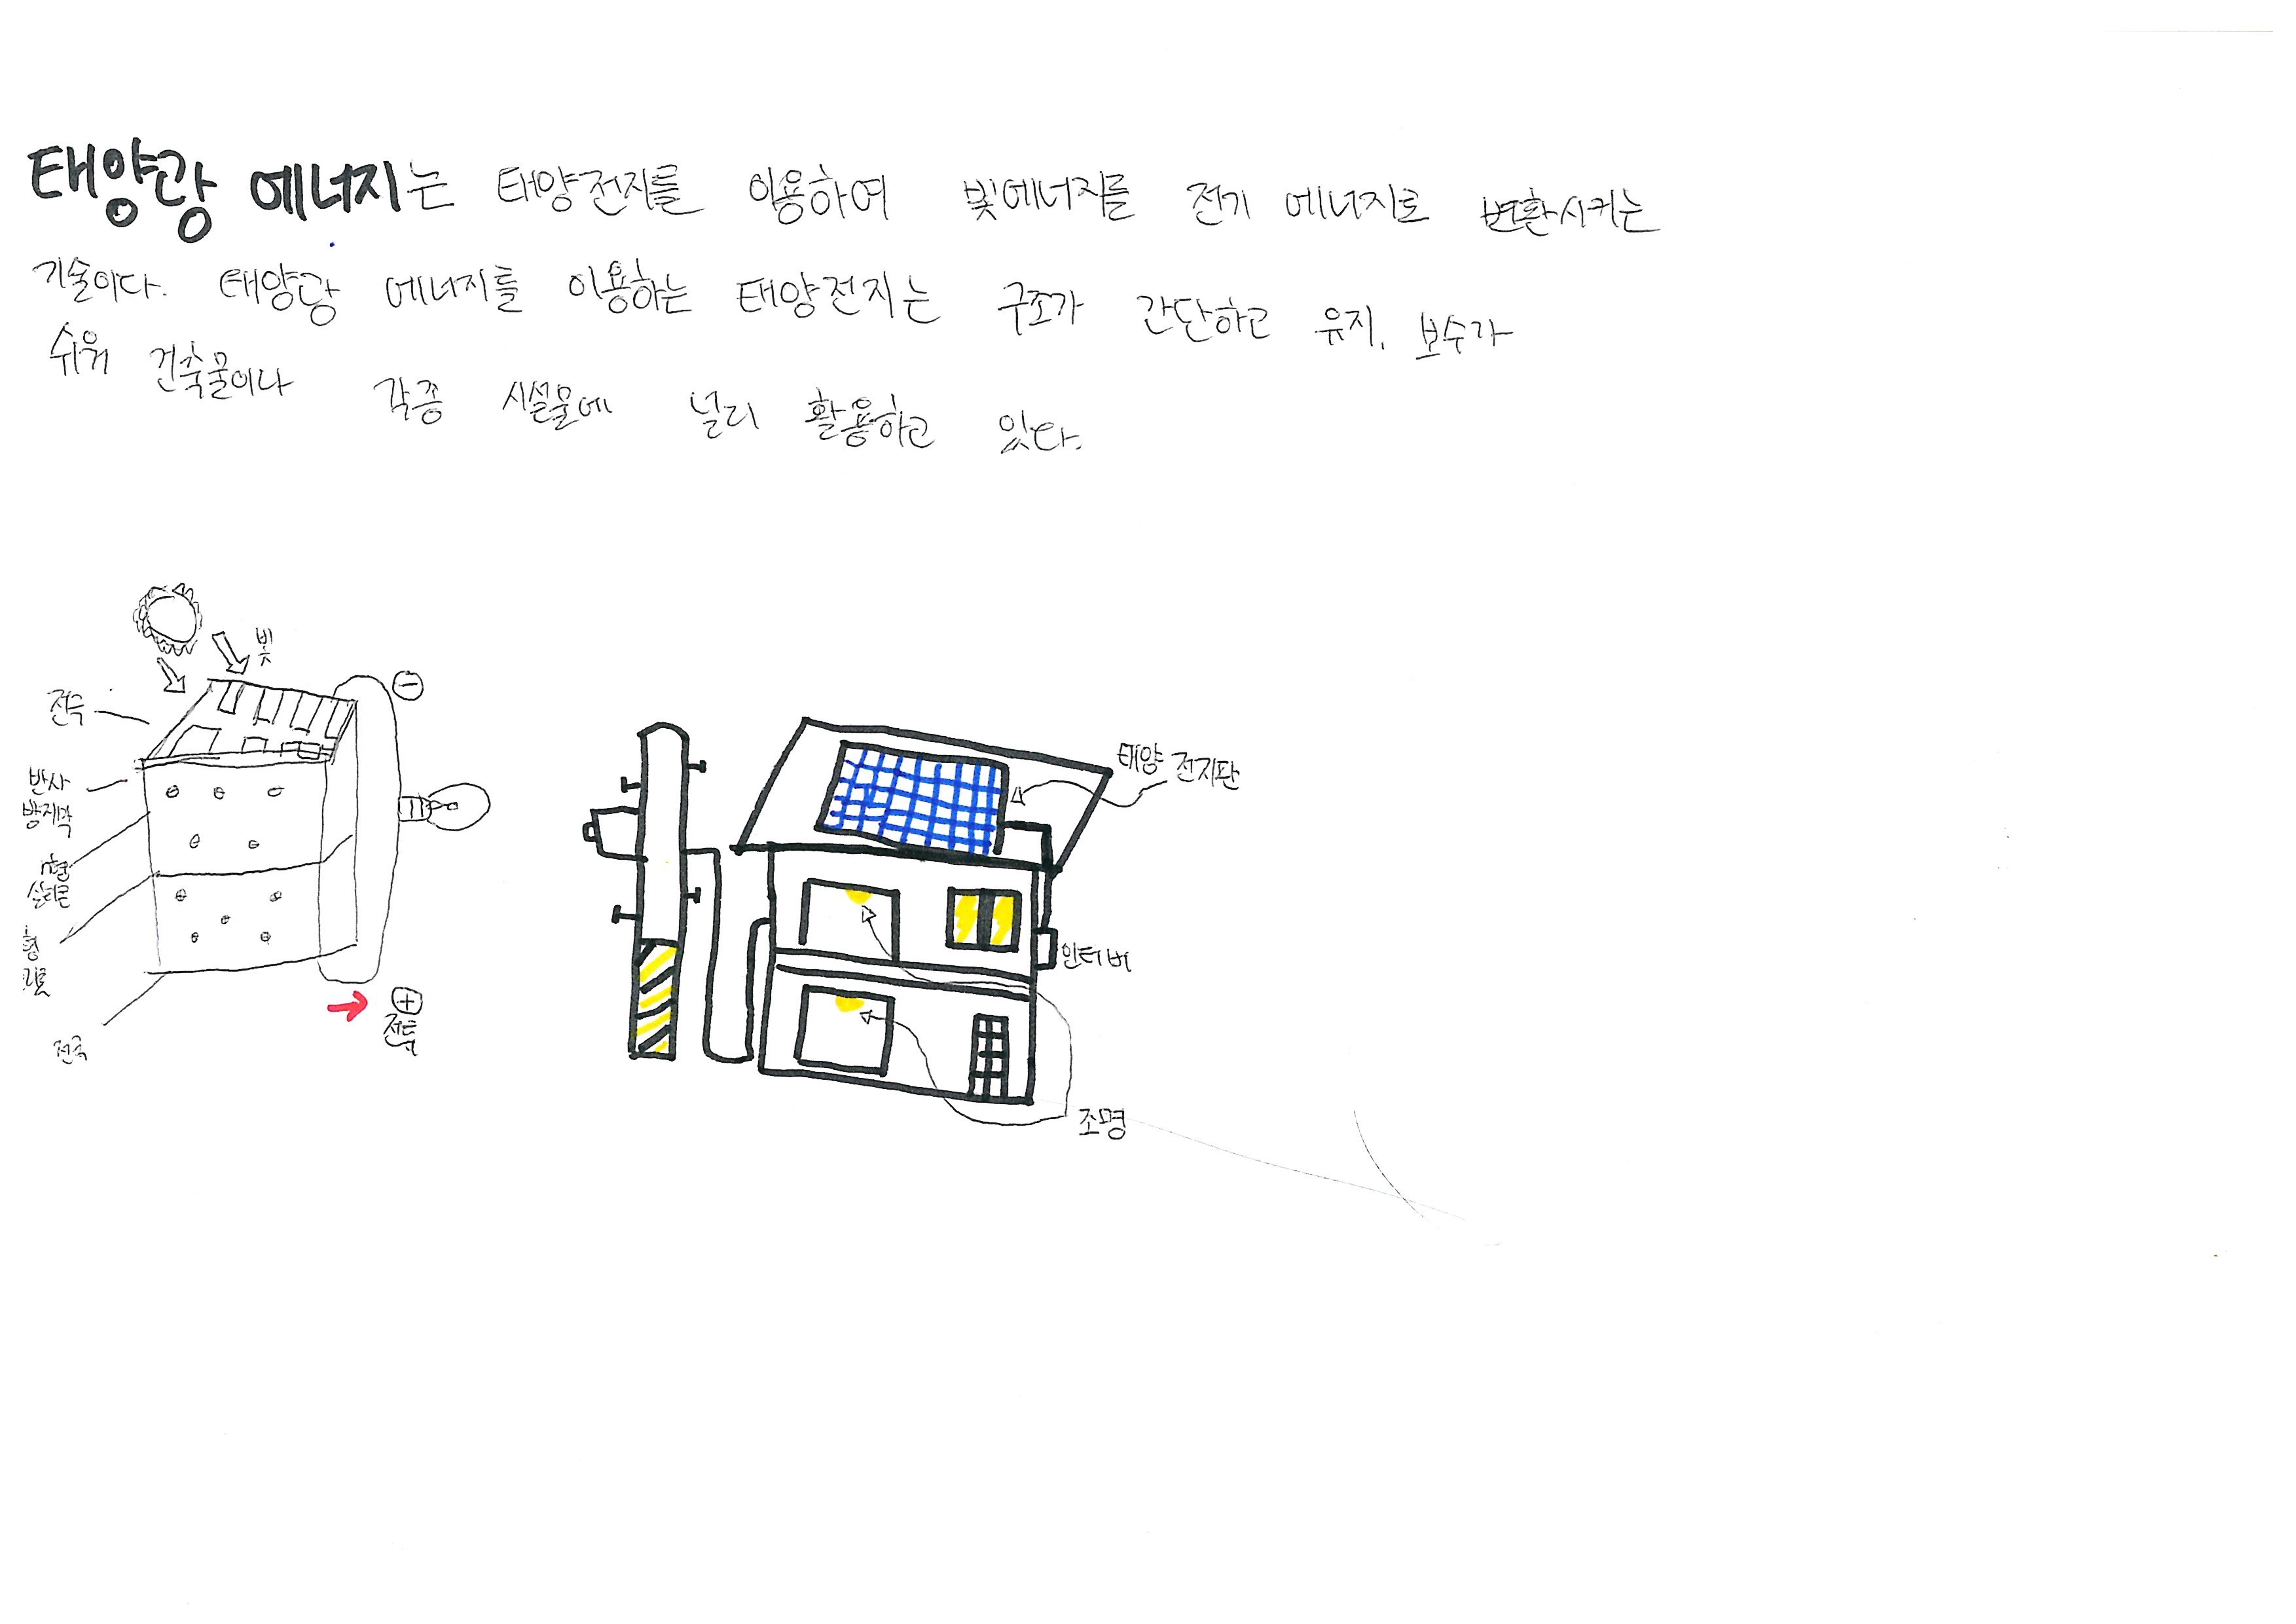 태양광 에너지는 태양전지를 이용하여 빛에너지를 전기 에너지로 변환시키는
기술이다. 태양광 에너지를 이용하는 태양전지는 구조가 간단하고 유지. 보수가
쉬워 건축물이나 각종 시설물에 널리 활용하고 있다.
빛
전극
반사
방지막
n형
실리콘
전극
태양 전지판
인터버
조명